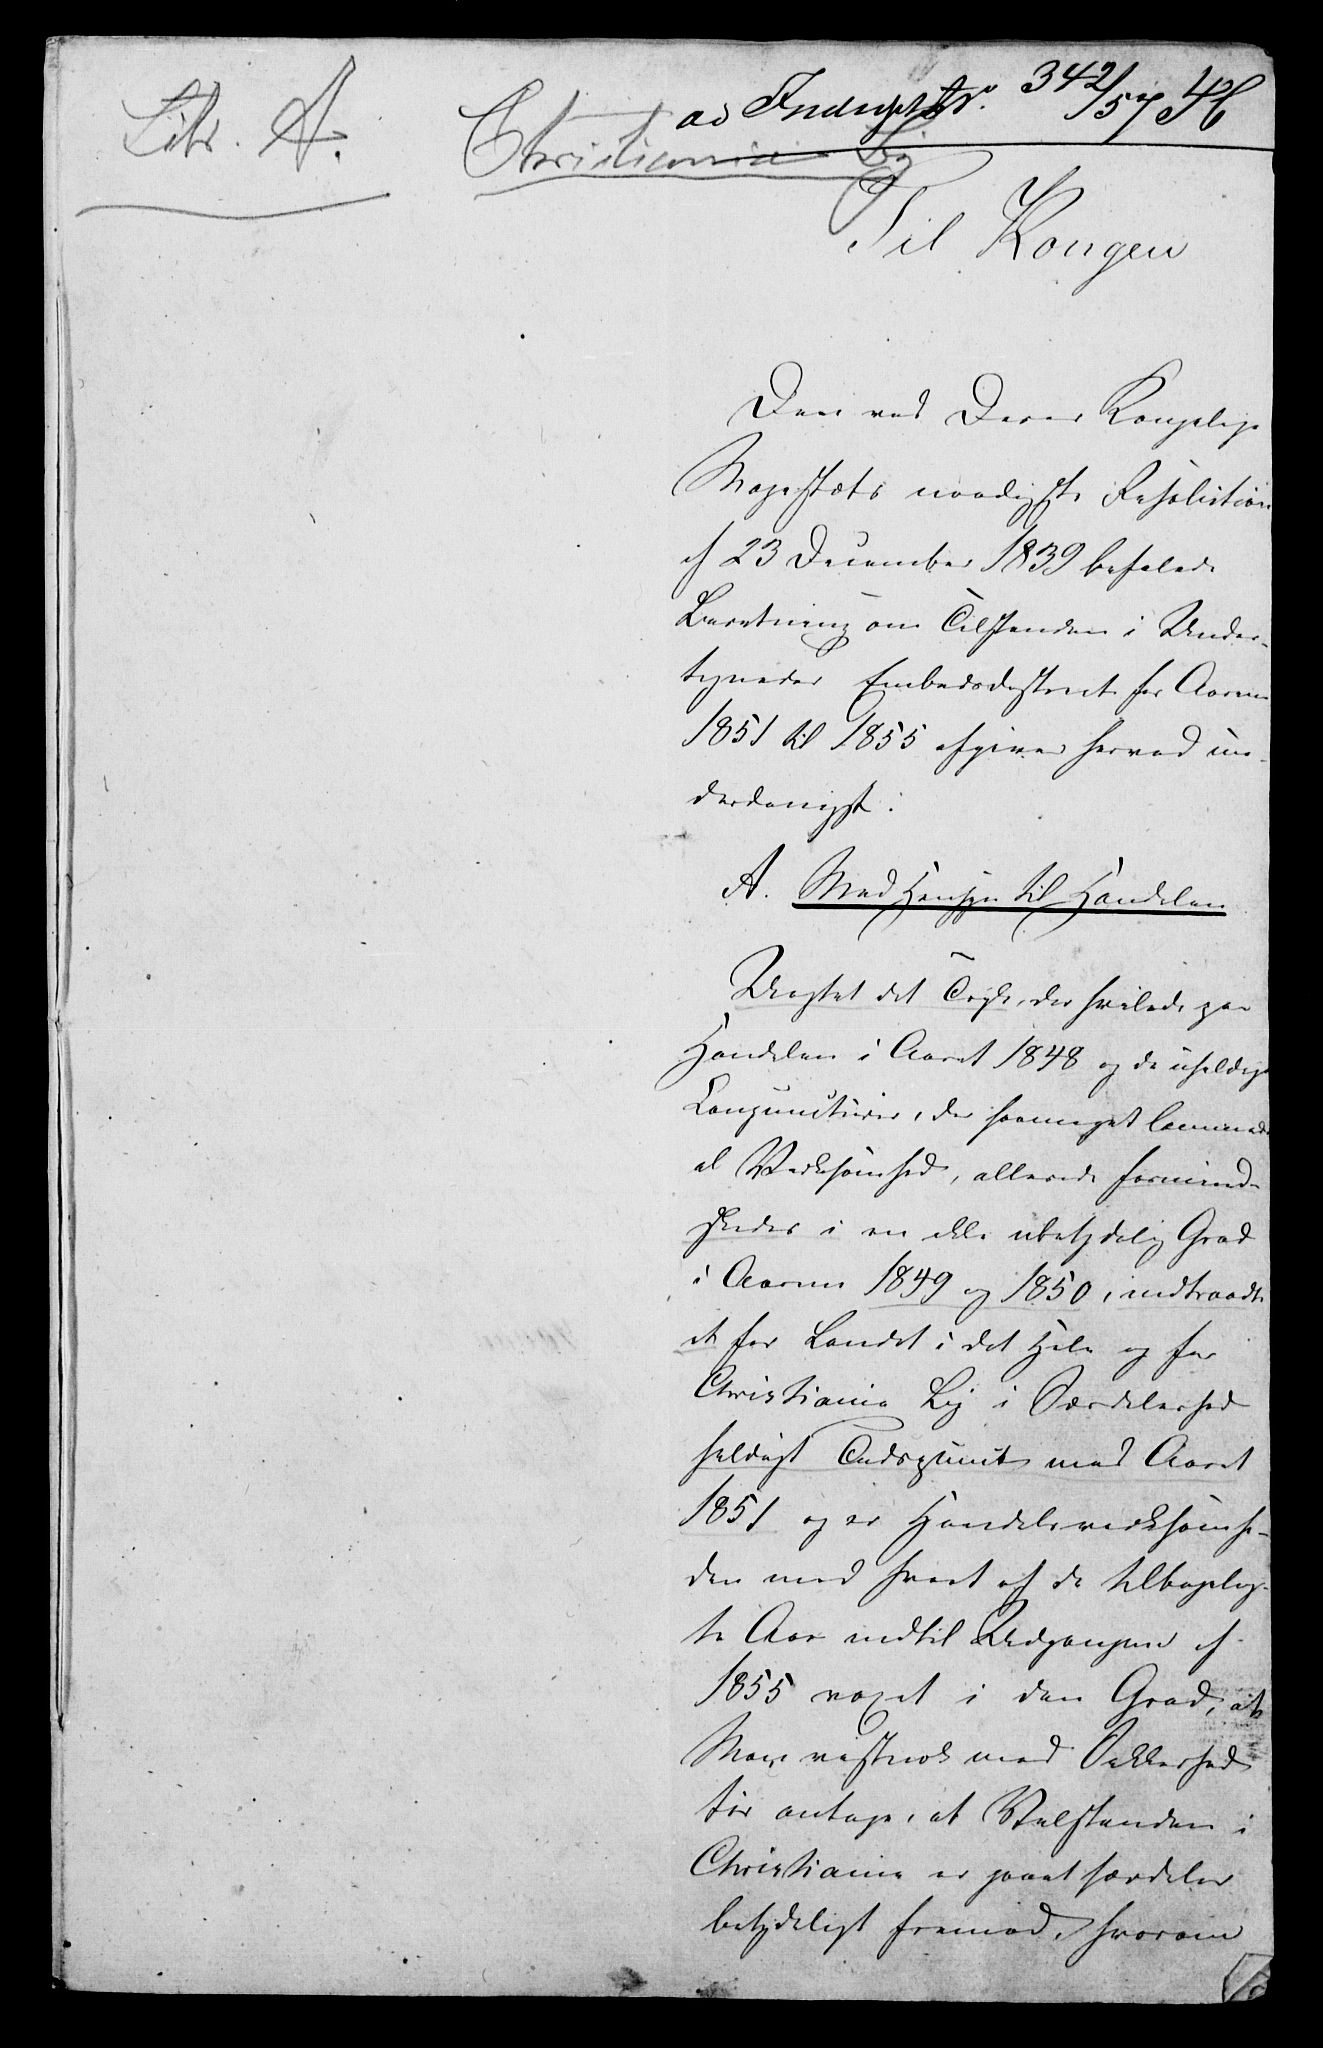 Litr. A.
ad Indrgst. Nr. 342/57 H
Christiania By
Til Kongen
Den ved Deres Kongelige
Majestæts naadigste Resolution
af 23 December 1839 befalede
Beretning om Tilstanden i Under-
tegnedes Embedsdistrict for Aarene
1851 til 1855 afgives herved un-
derdanigst:
A. Med Hensyn til Handelen
Uagtet det Tryk, der hvilede paa
Handelen i Aaret 1848 og de uheldige
Conjuncturer, der saameget lammede
al Virksomhed, allerede formind-
skedes i en ikke ubetydelig Grad
i Aarene 1849 og 1850, indtraadte
et for Landet i det Hele og for
Christiania By i Særdeleshed
heldigt Tidspunct med Aaret
1851 og er Handelsvirksomhe-
den med hvert af de tilbagelag-
te Aar indtil Udgangen af
1855 voxet i den Grad, at
Man vistnok med Sikkerhed
tør antage, at Velstanden i
Christiania er gaaet særdeles
betydeligt fremad, hvorom